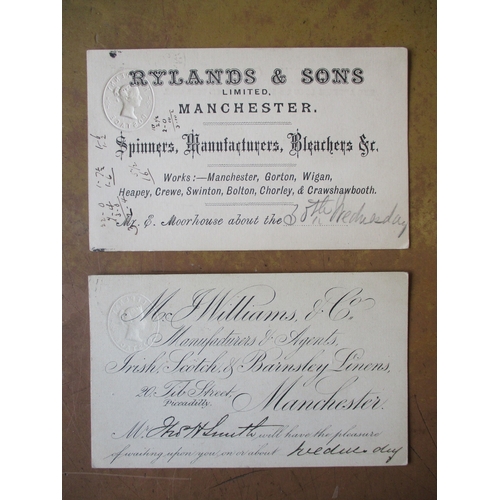 RYLANDS & SONS
LIMITED,
MANCHESTER.
Spinners, Manufacturers, Bleachers &c.
Works:—Manchester, Gorton, Wigan,
Heapey, Crewe, Swinton, Bolton, Chorley, & Crawshawbooth.
Mr. E. Moorhouse about the 30th Wednesday
McJ Williams, & Co.
Manufacturers & Agents,
Irish, Scotch, & Barnsley Linens,
20, Tib Street,
Piccadilly.
Manchester.
Mr. Thos H Smith will have the pleasure
of waiting upon you, on or about Wednesday